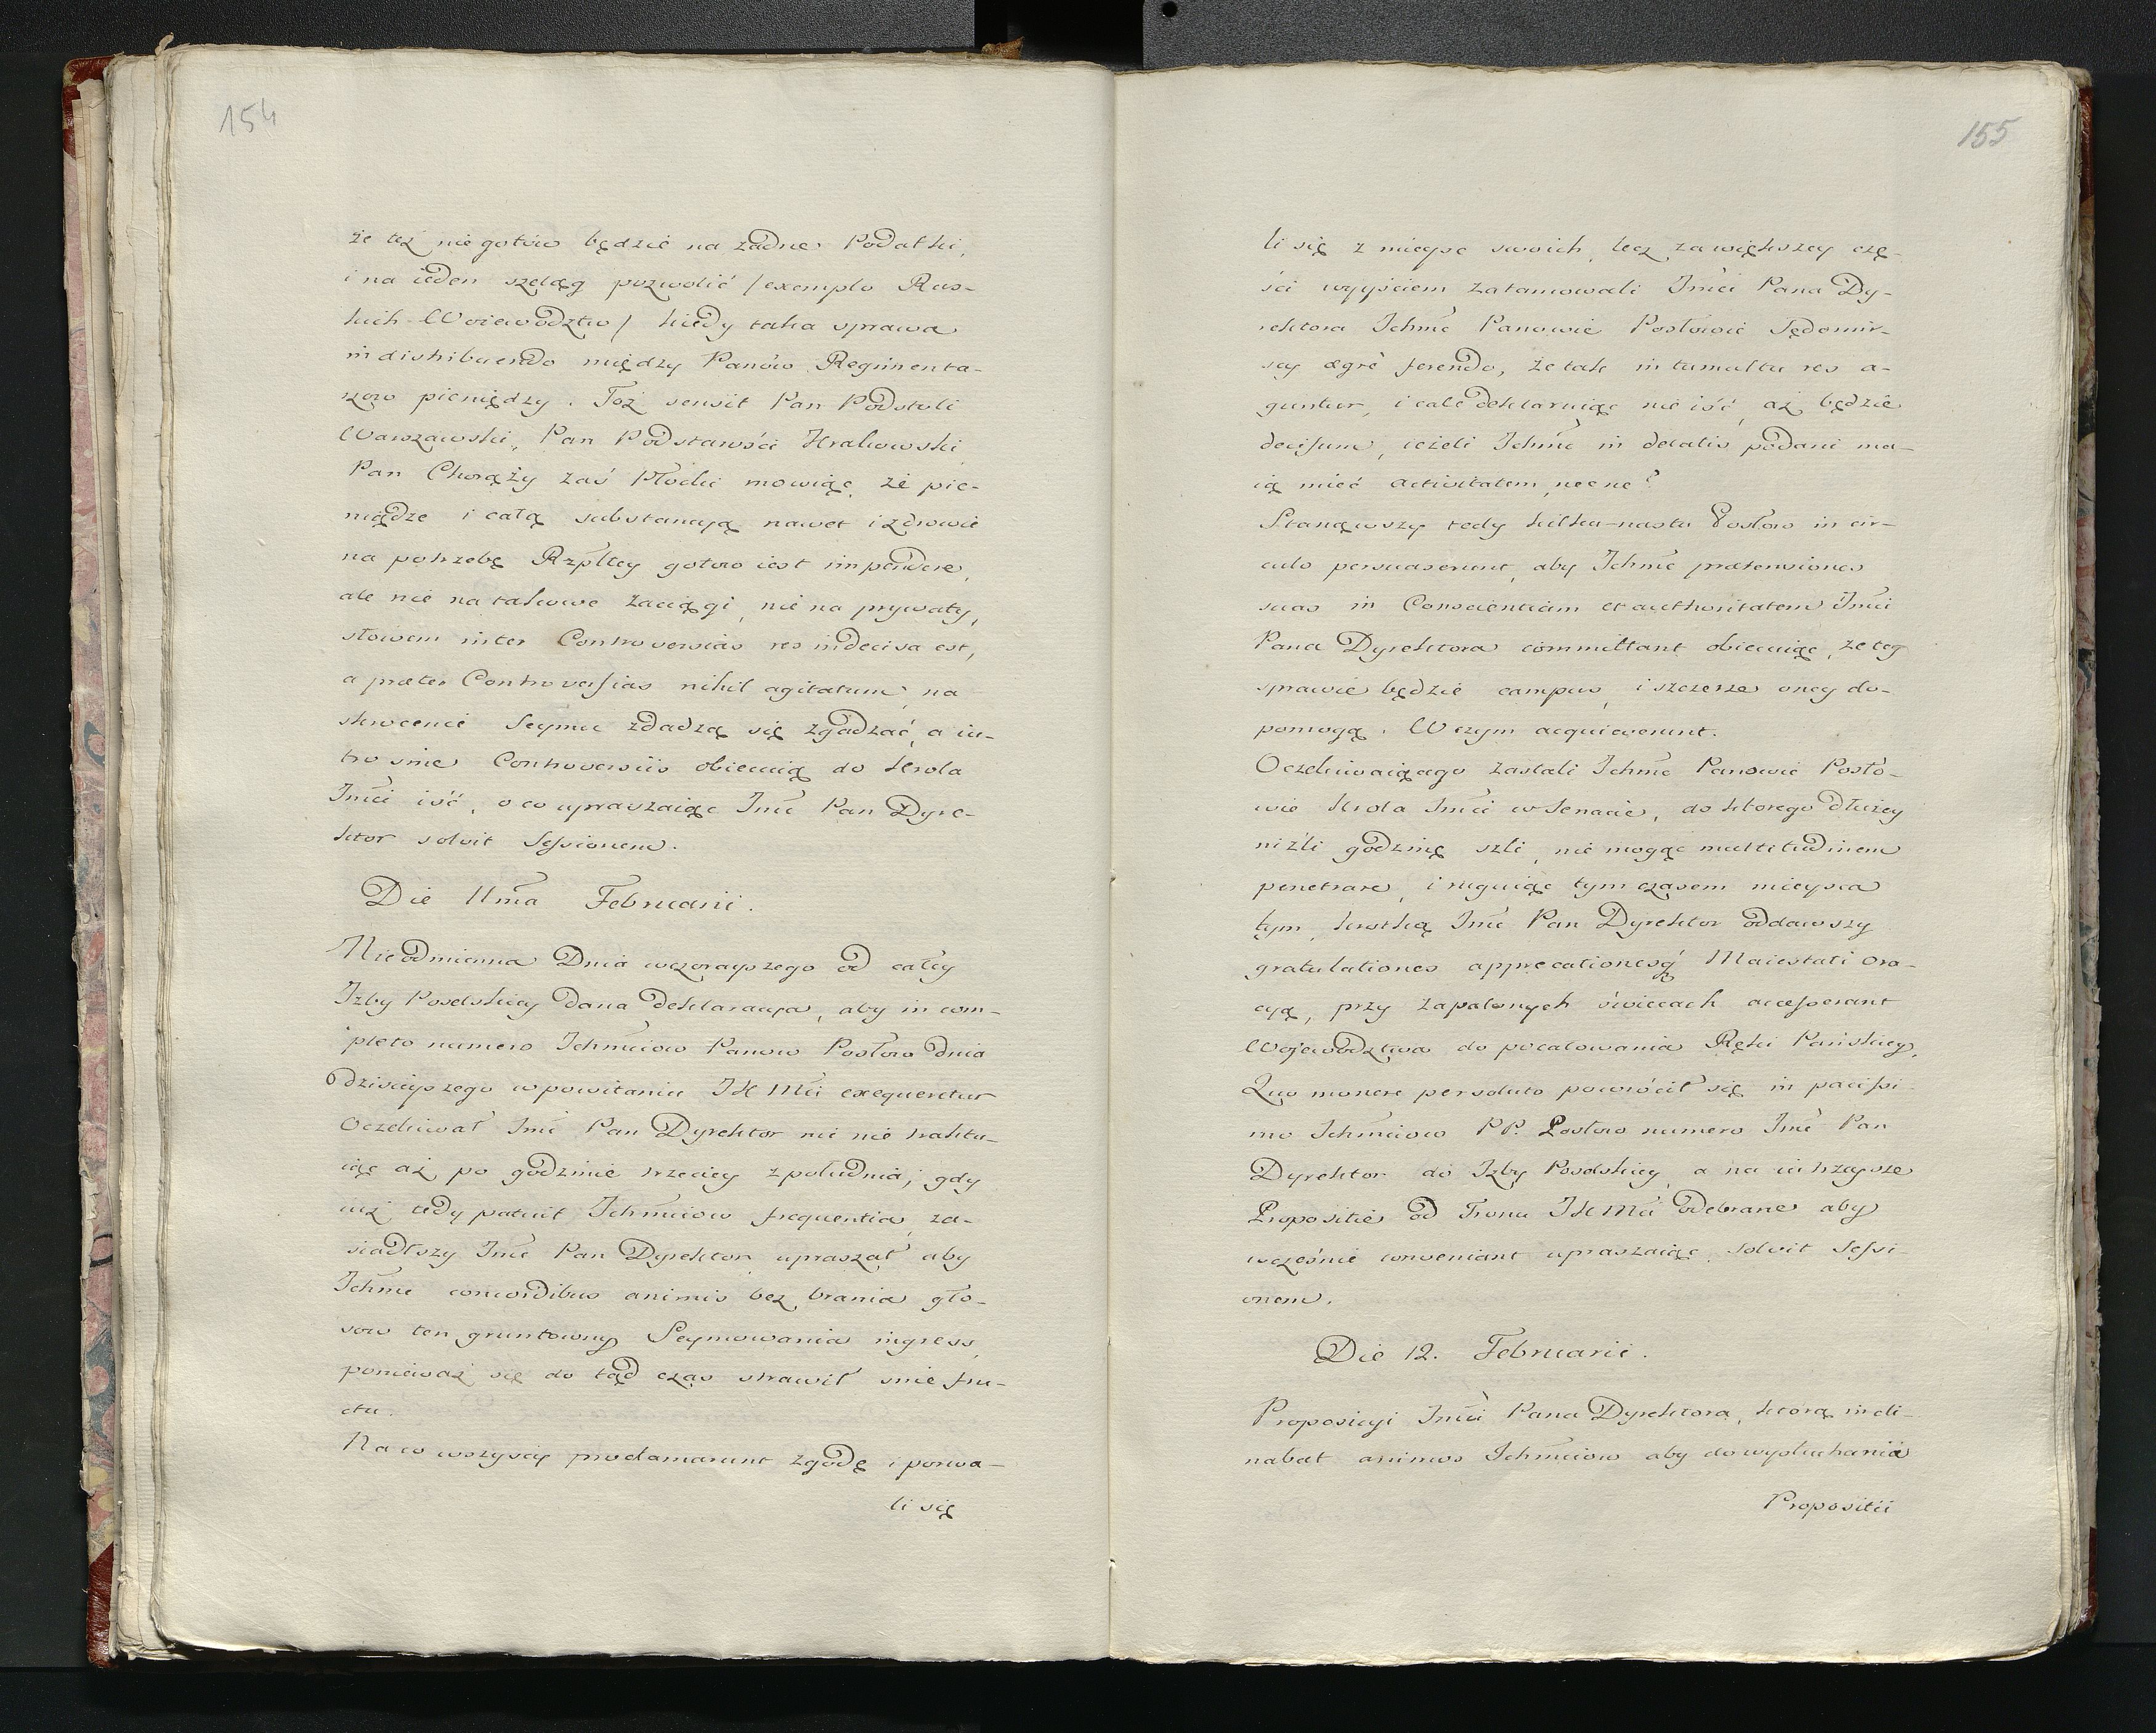 154
że też nie gotów będzie na żadne Podatki,
i na ieden szeląg pozwolić /exemplo Rus-
kich Woiewodztw/ kiedy taka sprawa
in distribuendo między Panów Regimenta-
rzow pieniędzy. Toż sensit Pan Podstoli
Warszawski, Pan Podstarości Krakowski,
Pan Chorąży zaś Płocki mowiąc, że pie-
niądze i całą substancyą nawet i zdrowie
na potrzebę Rzpltey gotow iest impendere,
ale nie na takowe zaciągi, nie na prywaty,
słowem inter Controversias res indecisa est,
a præter Controversias nihil agitatum, na
skrocenie Seymu zdadzą się zgadzać, a iu-
tro sine Controversiis obiecuią do Krola
Jmći iść, o co upraszaiąc Jmć Pan Dyre-
ktor solvit Sessionem.
Die 11ma Februarii.
Nieodmienna Dnia wczorayszego od całey
Izby Poselskiey dana deklaracya, aby in com-
pleto numero Ichmciow Panow Posłow dnia
dzisieyszego w powitaniu JK Mći exequeretur
Oczekiwał Jmć Pan Dyrektor nic nie traktu-
iąc aż po godzinie trzeciey z południa; gdy
iuż tedy patuit Ichmciow frequentia, za-
siadłszy Jmć Pan Dyrektor upraszał aby
Ichmć concordibus animis bez brania gło-
sow ten gruntowny Seymowania ingress,
ponieważ się do tąd czas strawił sine fru-
ctu.
Na co wszyscy proclamarunt zgodę i porwa-
li się
155
li się z mieysc swoich, lecz za większey czę-
ści wyyściem zatamowali Jmći Pana Dy-
rektora Ichmć Panowie Posłowie Sędomir-
scy ægrè ferendo, że tak in tumultu res a-
guntur, i cale deklaruiąc nie iść, aż będzie
decisum, ieżeli Ichmć in delatis podani ma-
ią mieć activitatem, nec ne?
Stanąwszy tedy kilku-nastu Posłow in cir-
culo persuaserunt, aby Ichmć prætensiones
suas in Conscientiam et authoritatem Jmći
Pana Dyrektora committant obiecuiąc, że tey
sprawie będzie campus, i szczerze oney do-
pomogą. W czym acquieverunt.
Oczekiwaiącego zastali Ichmć Panowie Posło-
wie Krola Jmći w Senacie, do ktorego dłużey
niżli godzinę szli, nie mogąc multitudinem
penetrare, i ruguiąc tym czasem mieysca
tym, krotką Jmć Pan Dyrektor oddawszy
gratulationes apprecationesq́ Maiestati ora-
cyą, przy zapalonych świecach accesserant
Wojewodztwa do pocałowania Ręki Pańskiey,
Quo munere persoluto powrócił się in paucissi-
mo Ichmciow PP. Posłow numero Jmć Pan
Dyrektor do Izby Poselskiey, a na iutrzeysze
Propositie od Tronu JK Mći odebrane aby
wcześnie conveniant upraszaiąc, solvit Sessi-
onem.
Die 12. Februarii.
Proposicyi Jmći Pana Dyrektora, ktorą incli-
nabat animos Ichmciow aby do wysłuchania
Propositii